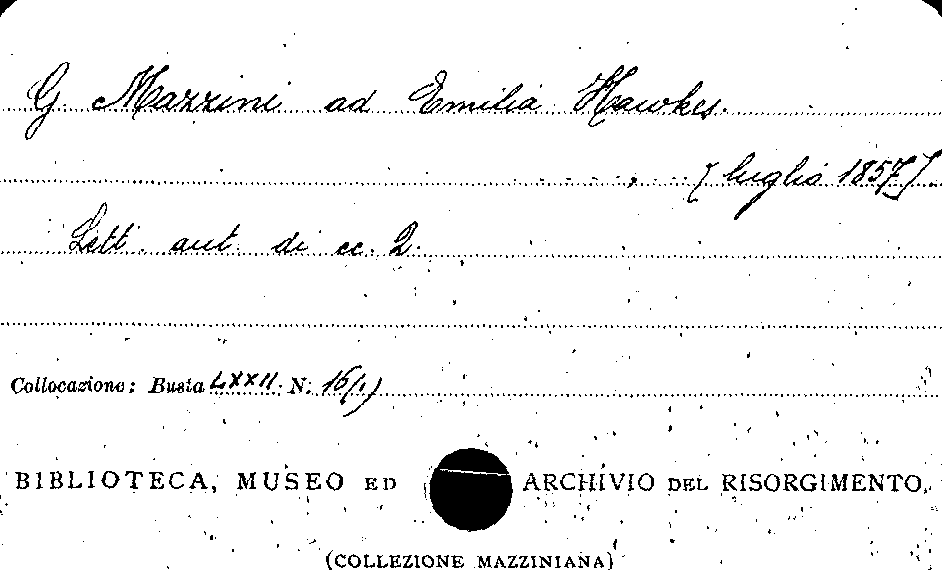 G. Mazzini ad Emilia Hawkes.
, [luglio 1857]
Lett. aut. di cc. 2.
Collocazione: Busta LXXII. N. 16(1)
BIBLIOTECA, MUSEO ED ARCHIVIO DEL RISORGIMENTO
(COLLEZIONE MAZZINIANA)